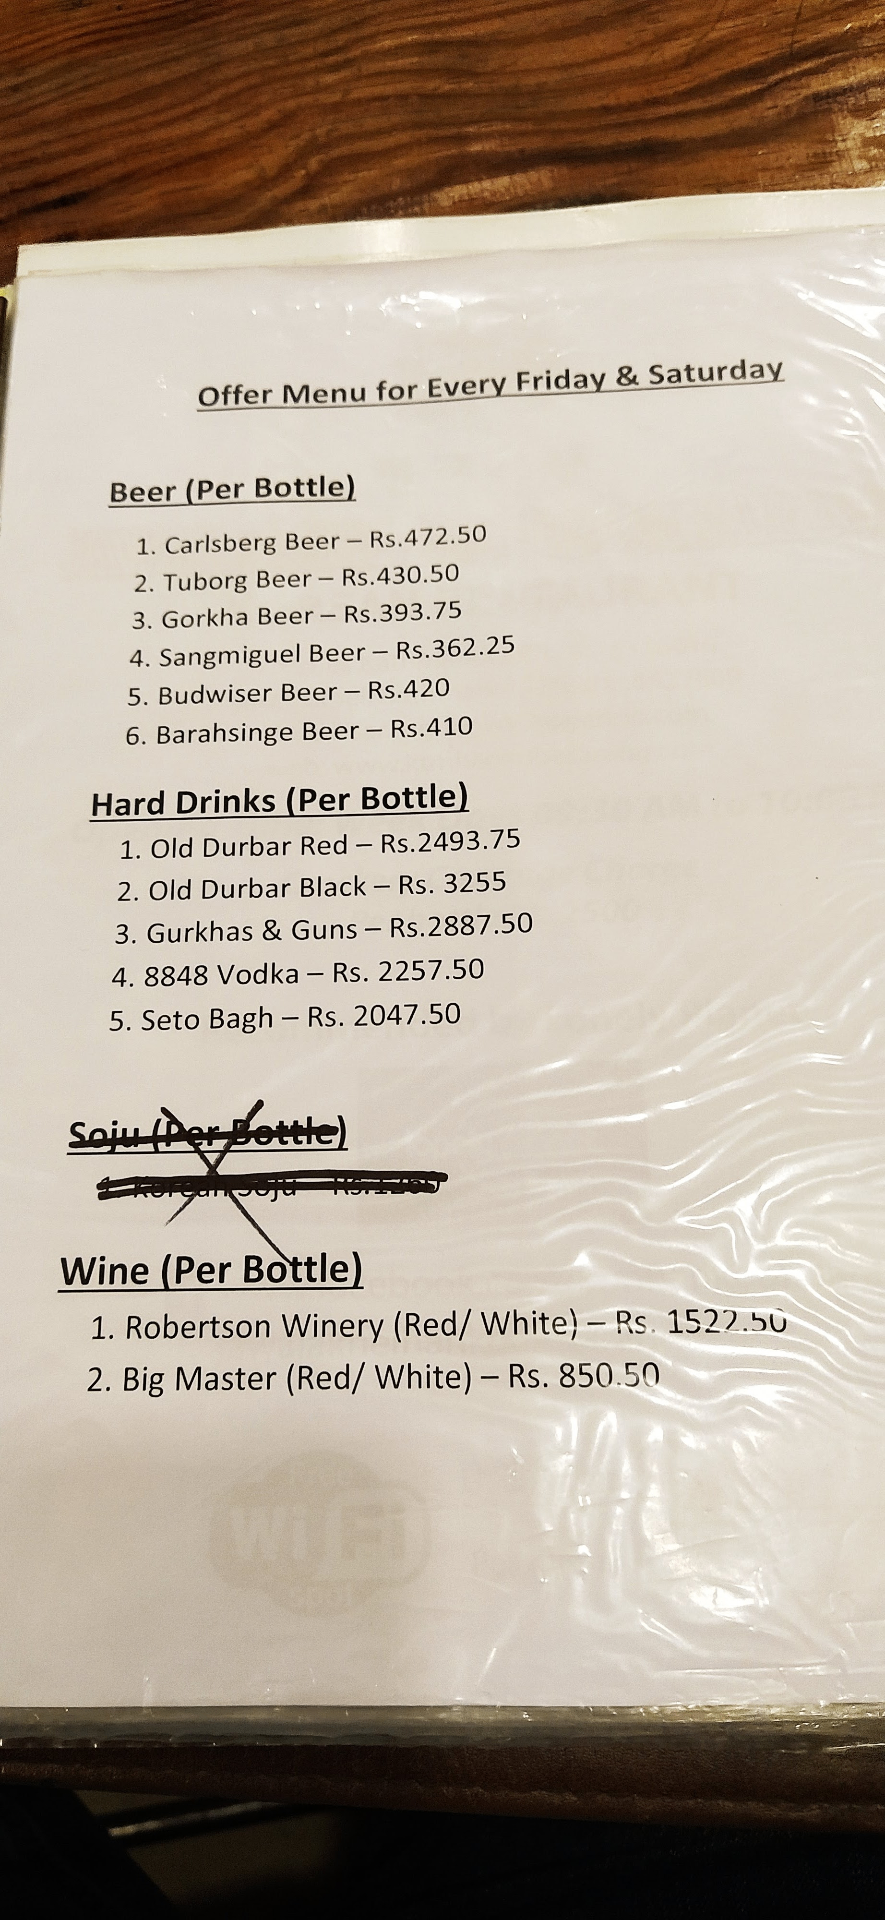 Offer Menu for Every Friday & Saturday
Beer (Per Bottle)
1. Carlsberg Beer – Rs.472.50
2. Tuborg Beer – Rs.430.50
3. Gorkha Beer – Rs.393.75
4. Sangmiguel Beer – Rs.362.25
5. Budwiser Beer – Rs.420
6. Barahsinge Beer – Rs.410
Hard Drinks (Per Bottle)
1. Old Durbar Red – Rs.2493.75
2. Old Durbar Black – Rs. 3255
3. Gurkhas & Guns – Rs.2887.50
4. 8848 Vodka – Rs. 2257.50
5. Seto Bagh – Rs. 2047.50
Soju (Per Bottle)
1. Korean Soju
Wine (Per Bottle)
1. Robertson Winery (Red/ White) – Rs. 1522.50
2. Big Master (Red/ White) – Rs. 850.50
WiFi